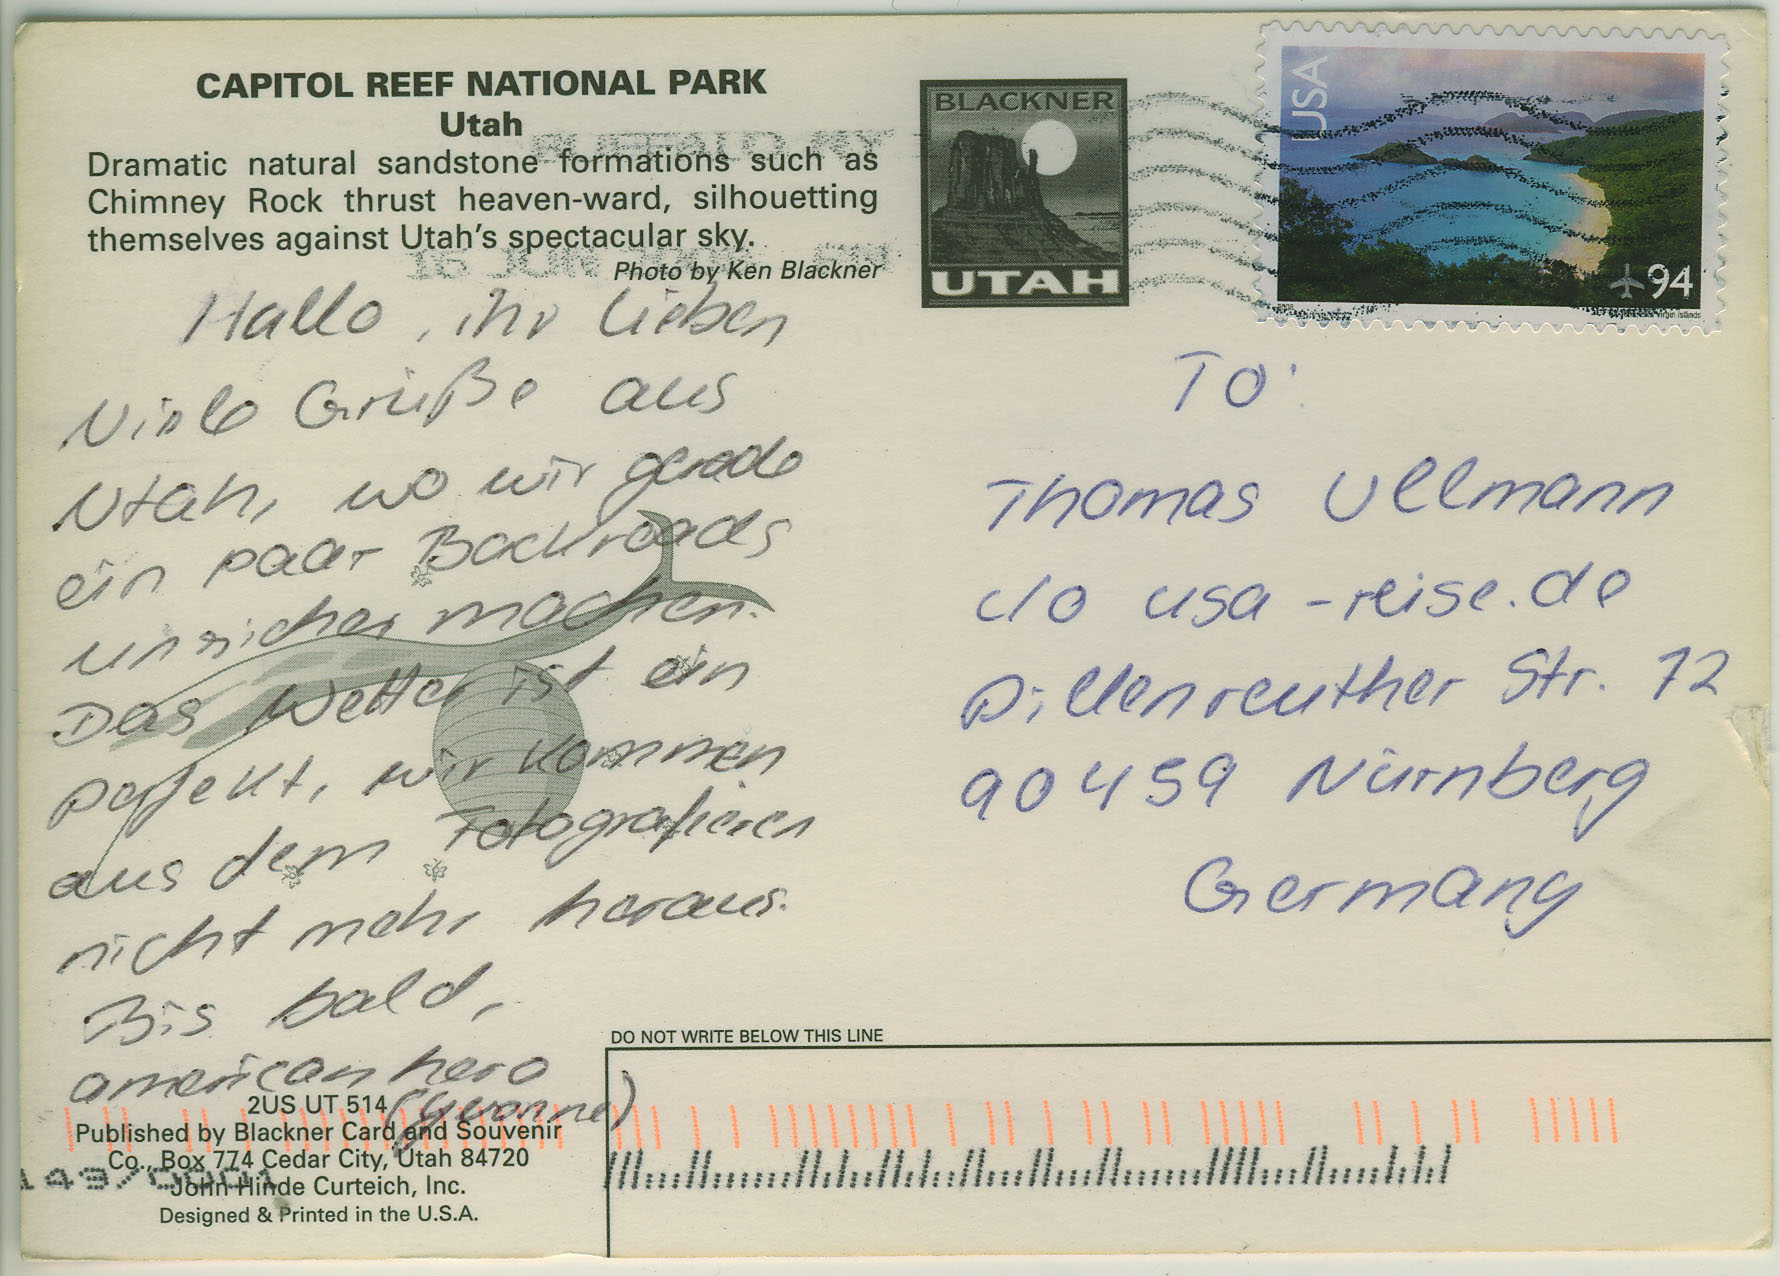 CAPITOL REEF NATIONAL PARK
Utah
Dramatic natural sandstone formations such as
Chimney Rock thrust heaven-ward, silhouetting
themselves against Utah's spectacular sky.
Photo by Ken Blackner
BLACKNER
UTAH
USA
94
2008
Virgin Islands
16 JUN
Hallo, ihr Lieben
Viele Grüße aus
Utah, wo wir gerade
ein paar Backroads
unsicher machen.
Das Wetter ist ein
perfekt, wir kommen
aus dem Fotografieren
nicht mehr heraus.
Bis bald,
americanhero
(Yvonne)
To:
Thomas Ullmann
c/o usa-reise.de
Dillenreuther Str. 72
90459 Nürnberg
Germany
DO NOT WRITE BELOW THIS LINE
2US UT 514
Published by Blackner Card and Souvenir
Co., Box 774 Cedar City, Utah 84720
John Hinde Curteich, Inc.
Designed & Printed in the U.S.A.